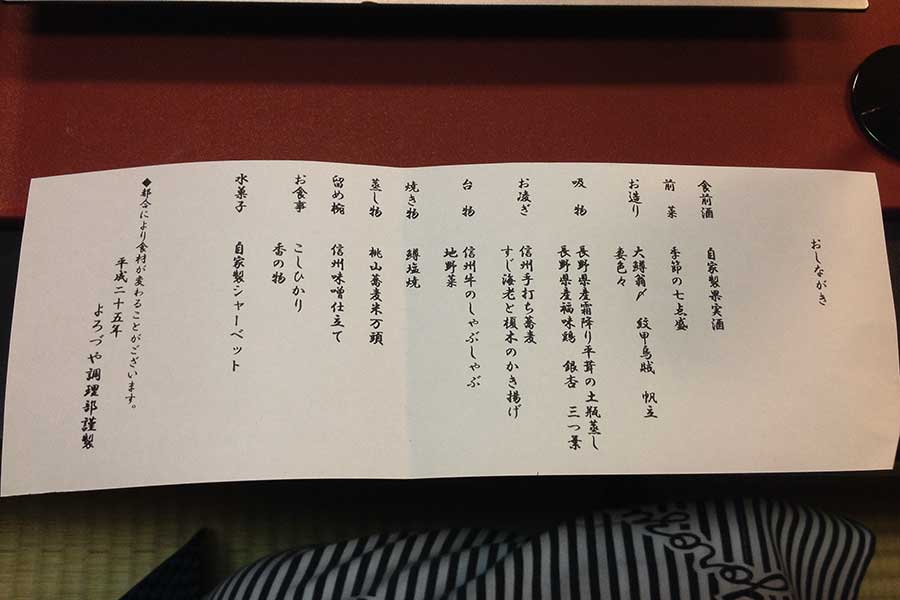 おしながき
食前酒 自家製果実酒
前菜 季節の七点盛
お造り 大鱒翁〆 紋甲烏賊 帆立
妻色々
吸物 長野県産霜降り平茸の土瓶蒸し
長野県産福味鶏 銀杏 三つ葉
お凌ぎ 信州手打ち蕎麦
すじ海老と榎木のかき揚げ
台物 信州牛のしゃぶしゃぶ
地野菜
焼き物 鱒塩焼
蒸し物 桃山蕎麦米万頭
留め椀 信州味噌仕立て
お食事 こしひかり
香の物
水菓子 自家製シャーベット
◆都合により食材が変わることがございます。
平成二十五年
よろづや調理部謹製